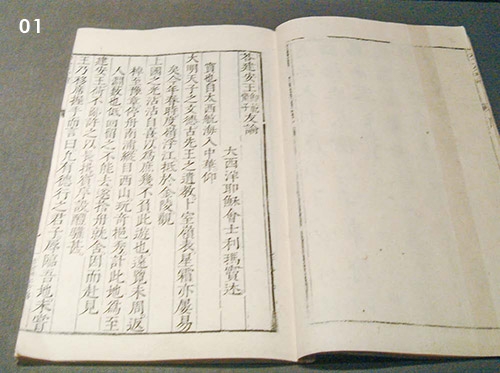 01
荅建安王友論
大西洋耶穌會士利瑪竇述
竇也自太西航海入中華仰
大明天子之文德古先王之遺教卜室嶺表星霜亦屢易
矣今年春時度嶺浮江抵於金陵觀
上國之光沾沾自喜以爲庶幾不負此遊也遠覽未周返
棹至豫章停舟南浦縱目西山玩奇挹秀計此地爲至
人淵藪也低回留之不能去遂捨舟就舍因而赴見
建安王荷不鄙許之以長揖賓序設醴驩甚
王乃移席握手而言曰凡有德行之君子辱臨吾地未嘗